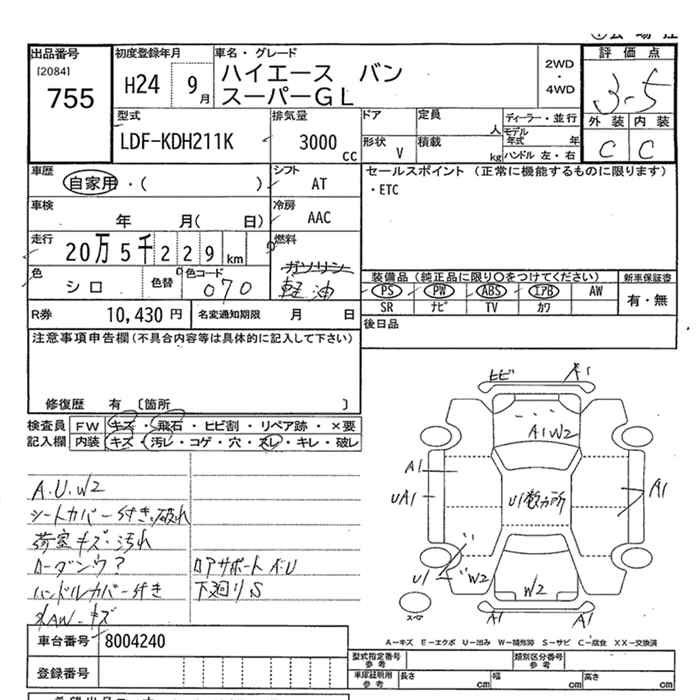 出品番号
[2084]
755
初度登録年月
H24 9月
車名・グレード
ハイエース バン
スーパーGL
2WD
・
4WD
評価点
3-5
外装 内装
C C
型式
LDF-KDH211K
排気量
3000 cc
ドア
定員
人
形状
V
積載
kg
ディーラー・並行
モデル
年式 年
ハンドル 左・右
車歴
自家用・( )
シフト
AT
車検
年 月( 日)
冷房
AAC
走行
20万5千229km
燃料
ガソリン
軽油
色
シロ
色替
色コード
070
R券
10,430 円
名変通知期限 月 日
セールスポイント (正常に機能するものに限ります)
・ETC
装備品 (純正品に限り〇をつけてください)
新車保証書
PS PW ABS エアB AW
SR ナビ TV カワ
有・無
後日品
注意事項申告欄(不具合内容等は具体的に記入して下さい)
修復歴 有 〔箇所 〕
検査員
記入欄
FW キズ・飛石・ヒビ割・リペア跡・×要
内装 キズ・汚レ・コゲ・穴・スレ・キレ・破レ
A.U.W2
シートカバー付き.破れ
荷室キズ・汚れ
ローダウン?
ハンドルカバー付き
AW-キズ
ロアサポートA・U
下廻りS
ヒビ
A1
A1W2
A1
UA1
U1数カ所
A1
U1
W2
W2
A1
A1
スペア
A-キズ E-エクボ U-凹み W-補修跡 S-サビ C-腐食 XX-交換済
車台番号
8004240
登録番号
型式指定番号
参考
類別区分番号
参考
車庫証明用
参考
長さ cm
幅 cm
高さ cm